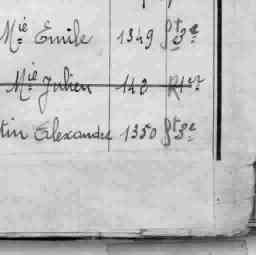 Mie Emile 1349 St 3e
Mie Julien 140
tin Alexandre 1350 St 3e